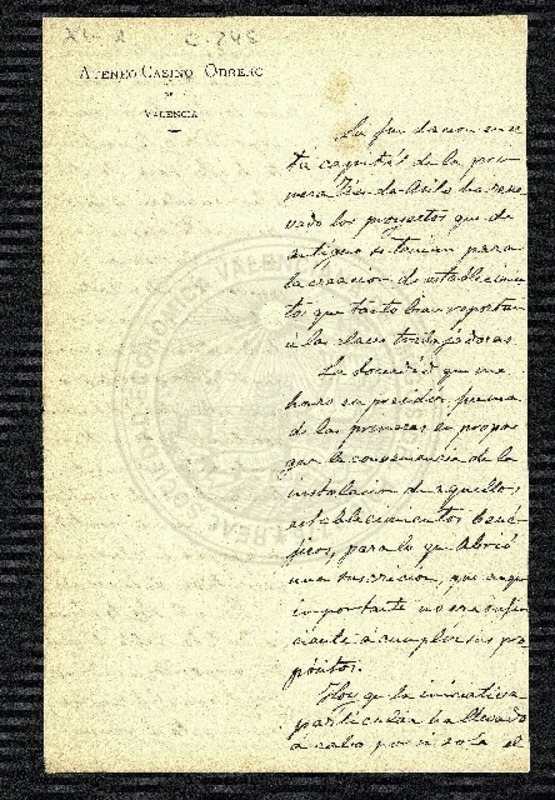 C-245
ATENEO CASINO OBRERO
DE
VALENCIA
La fundacion en es
ta capital de la pri
mera Tienda-Asilo ha reno
vado los proyectos que de
antiguo se tenian para
la creacion de establecimien
tos que tanto bien reportan
á las clases trabajadoras.
La Sociedad que me
honro en presidir, fué una
de las primeras en propa
gar la conveniencia de la
instalacion de aquellos
establecimientos bené
ficos, para lo que abrió
una suscricion, que aunque
importante no era sufi
ciente á cumplir sus pro
pósitos.
Hoy que la iniciativa
particular ha llevado
á cabo por si sola el